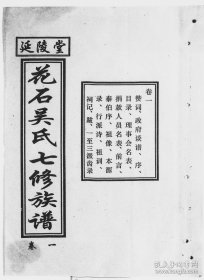 延陵堂
花石吴氏七修族谱
卷一
卷一
赞词、政府谈谱、序、
目录、理事会名表、
捐款人员名表、前言、
泰伯序、祖像、本源
录、行派诗、祖训、
祠记、跋、一至三派齿录